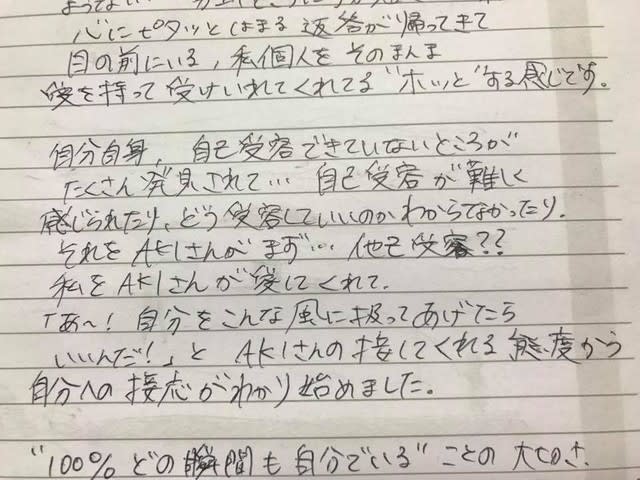 心にピタッとはまる返答が帰ってきて
目の前にいる、私個人をそのまんま
愛を持って受けいれてくれてる"ホッと"する感じです。
自分自身、自己受容できていないところが
たくさん発見されて… 自己受容が難しく
感じられたり、どう受容していいのかわからなかったり。
それをAKIさんがまず… 他己受容??
私をAKIさんが愛してくれて、
「あ〜!自分をこんな風に扱ってあげたら
いいんだ!」と AKIさんの接してくれる態度から
自分への接し方がわかり始めました。
"100% どの瞬間も自分でいる"ことの大切さ